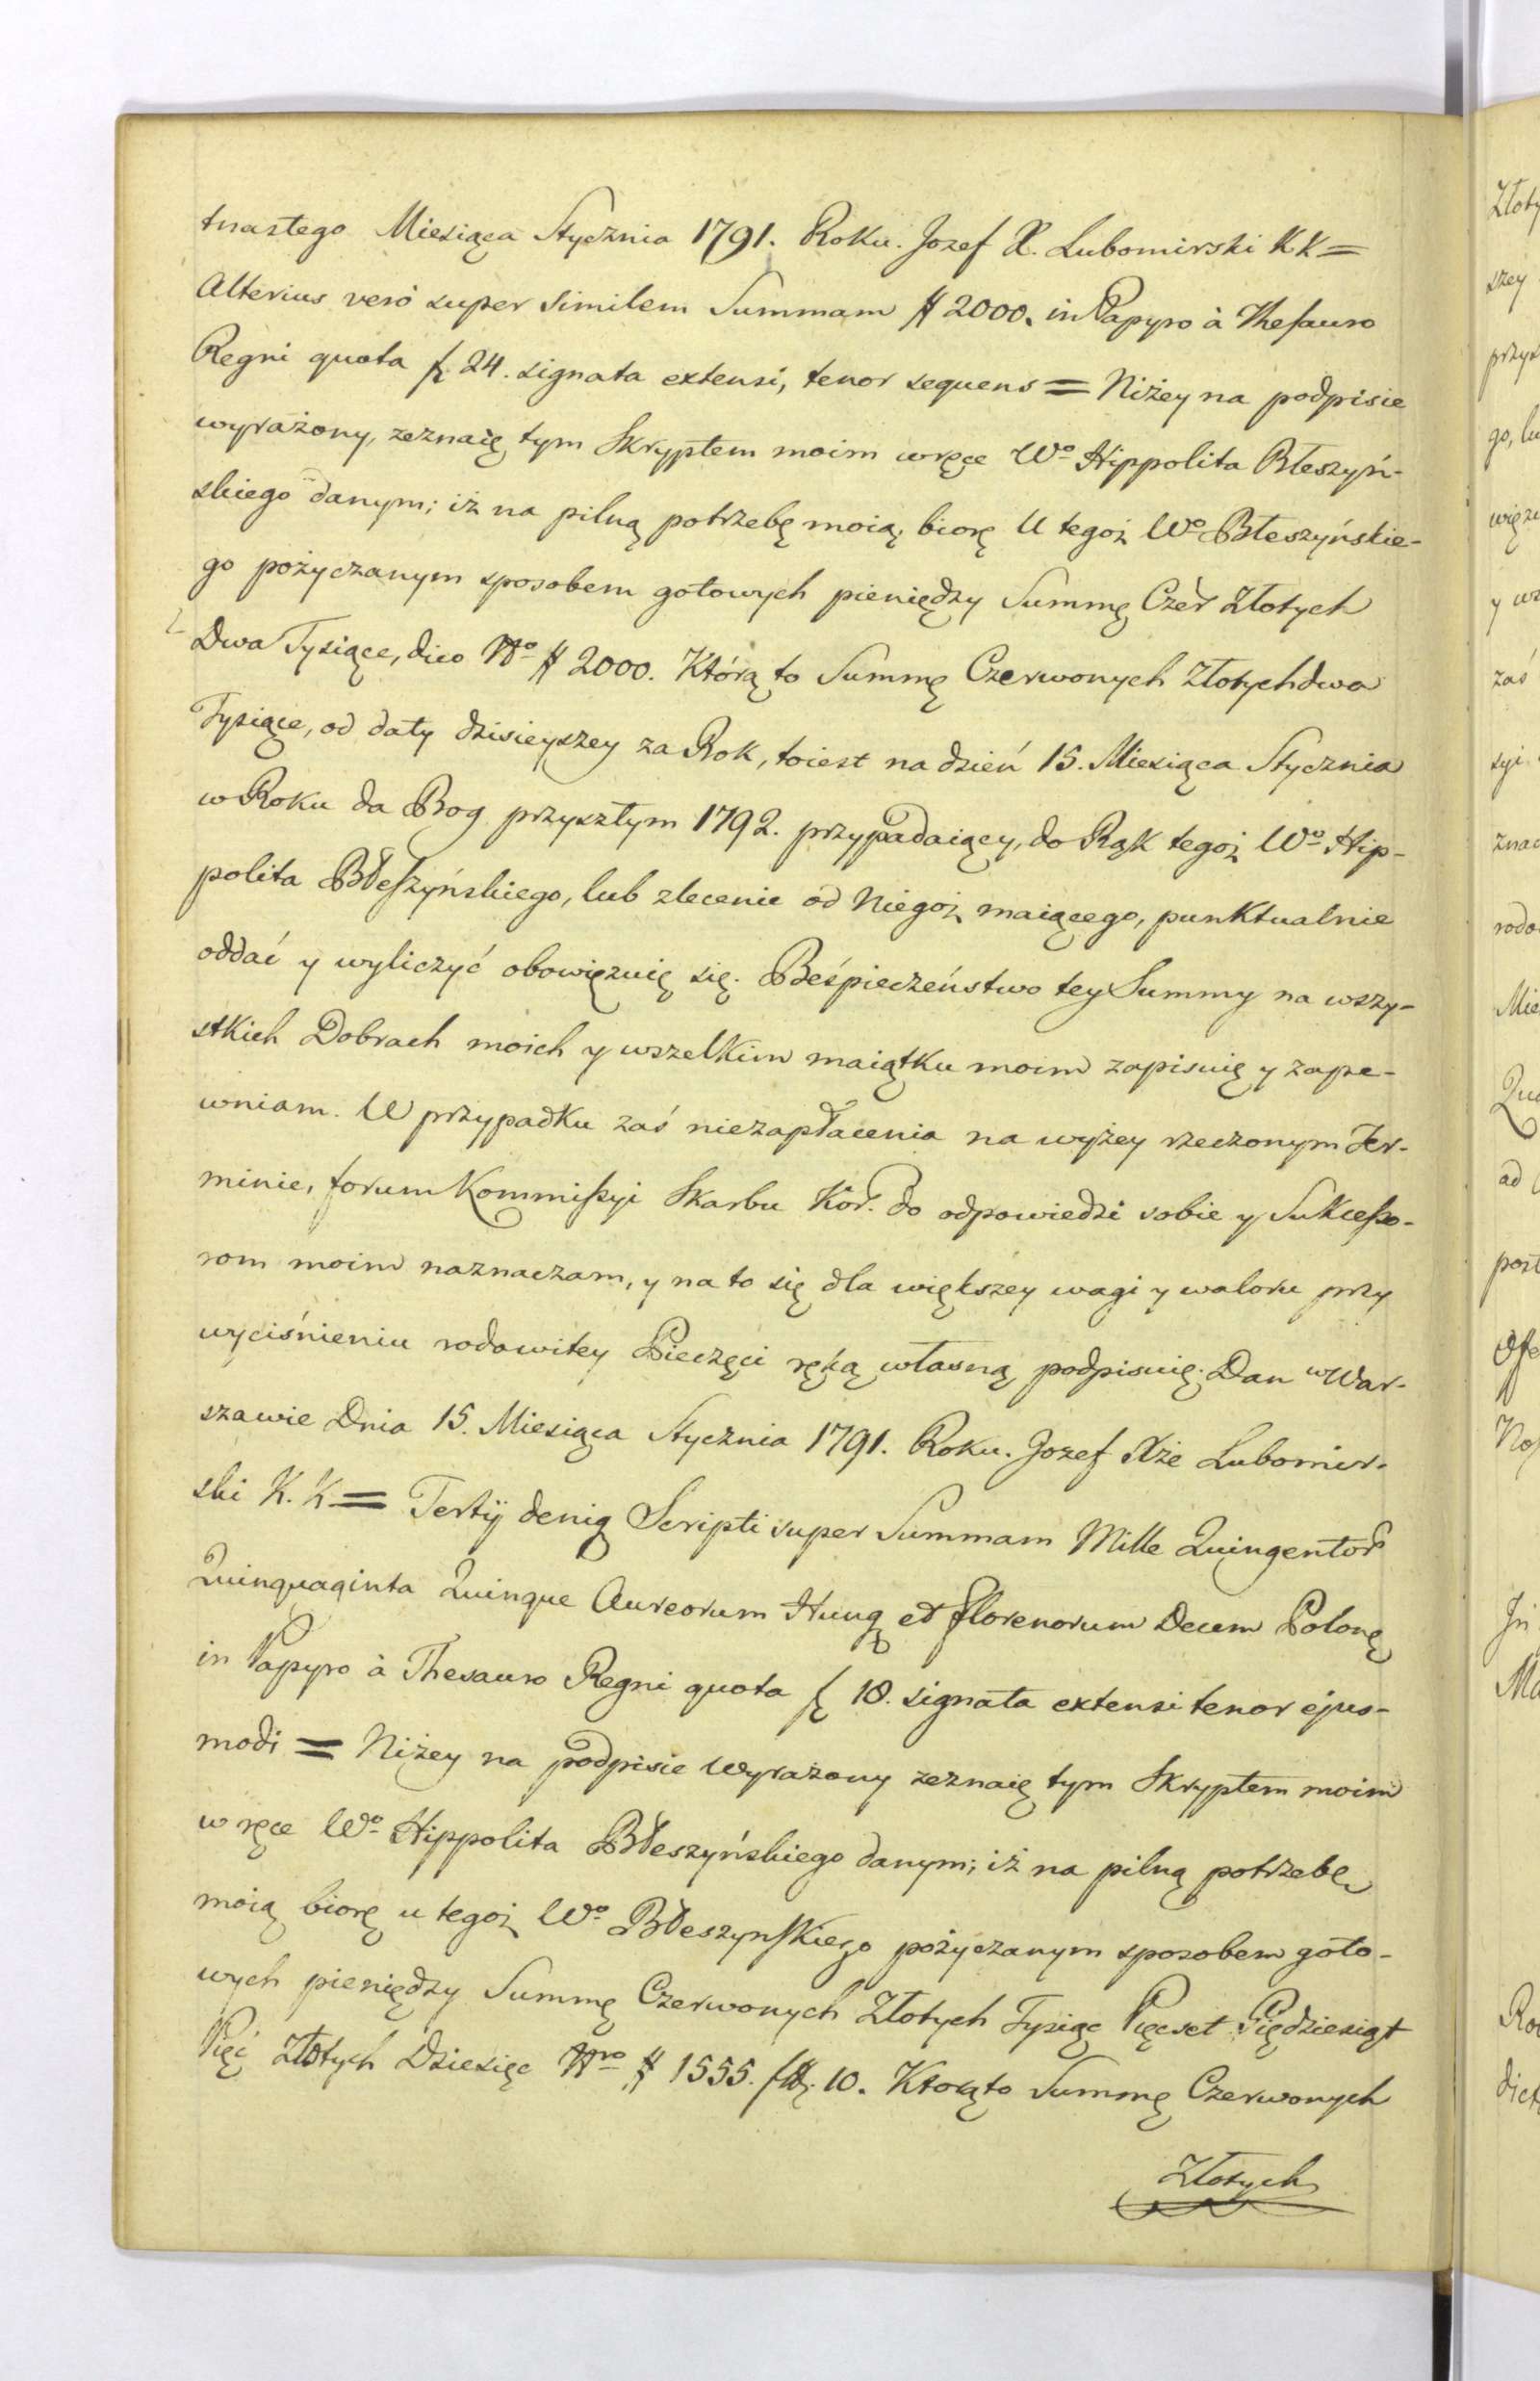 tnastego Miesiąca Stycznia 1791. Roku. Jozef X. Lubomirski KK=
Alterius verò super similem Summam # 2000. in Papyro à Thesauro
Regni quota f. 24. signata extensi, tenor sequens = Niżey na podpisie
wyrażony, zeznaię tym Skryptem moim wręce Wo Hippolita Błeszyń-
skiego danym; iż na pilną potrzebę moią, biorę U tegoż Wo Błeszyńskie-
go pożyczanym sposobem gotowych pieniędzy Summę Czer Złotych
Dwa Tysiące, dico No # 2000. Którą to Summę Czerwonych Złotych dwa
Tysiące, od daty dzisieyszey za Rok, toiest na dzień 15. Miesiąca Stycznia
w Roku da Bog przyszłym 1792. przypadaiący, do Rąk tegoż Wo Hip-
polita Błeszyńskiego, lub zlecenie od Niegoż maiącego, punktualnie
oddać y wyliczyć obowięzuię się. Beśpieczeństwo tey Summy na wszy-
stkich Dobrach moich y wszelkim maiątku moim zapisuię y zape-
wniam. W przypadku zaś niezapłacenia na wyżey rzeczonym Ter-
minie, forum Kommissyi Skarbu Kor. do odpowiedzi sobie y Sukcesso-
rom moim naznaczam, y na to się dla większey wagi y waloru przy
wyciśnieniu rodowitey Pieczęci ręką własną podpisuię. Dan w War-
szawie Dnia 15. Miesiąca Stycznia 1791. Roku. Jozef Xże Lubomir-
ski K. K. = Tertij deniq Scripti super Summam Mille Quingentor
Quinquaginta Quinque Aureorum Hung et florenorum Decem Polon
in Papyro à Thesauro Regni quota f 18. signata extensi tenor ejus-
modi = Niżey na podpisie Wyrażony zeznaię tym Skryptem moim
w ręce Wo Hippolita Błeszyńskiego danym; iż na pilną potrzebę
moią biorę u tegoż Wo Błeszynskiego pożyczanym sposobem goto-
wych pieniędzy Summę Czerwonych Złotych Tysiąc Pięcset Piędziesiąt
Pięć Złotych Dziesięc Nro # 1555. f 10. Ktorąto Summę Czerwonych
Złotych